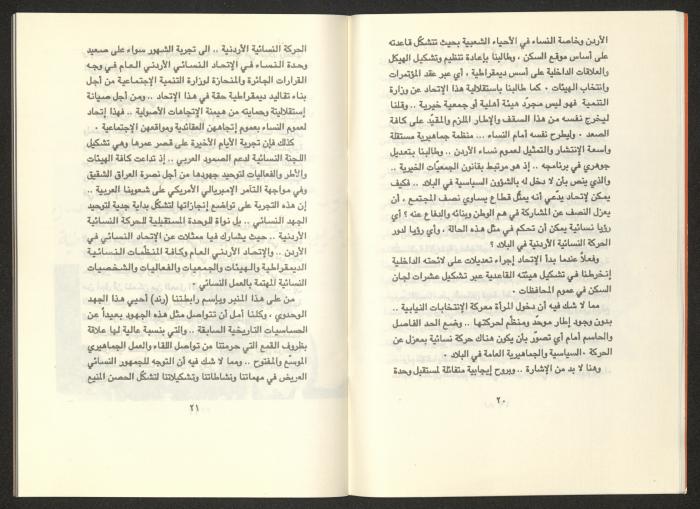 الأردن وخاصة النساء في الأحياء الشعبية بحيث تتشكّل قاعدته
على أساس موقع السكن ، وطالبنا بإعادة تنظيم وتشكيل الهيكل
والعلاقات الداخلية على أسس ديمقراطية ، أي عبر عقد المؤتمرات
وانتخاب الهيئات . كما طالبنا باستقلالية هذا الإتحاد عن وزارة
التنمية فهو ليس مجرّد هيئة أهلية أو جمعية خيرية .. وقلنا
ليخرج نفسه من هذا السقف والإطار الملزم والمقيّد على كافة
الصعد . وليطرح نفسه أمام النساء ... منظمة جماهيرية مستقلة
واسعة الإنتشار والتمثيل لعموم نساء الأردن .. وطالبنا بتعديل
جوهري في برنامجه .. إذ هو مرتبط بقانون الجمعيّات الخيرية ..
والذي ينص بأن لا دخل له بالشؤون السياسية في البلاد .. فكيف
يمكن لإتحاد يدّعي أنه يمثّل قطاع يساوي نصف المجتمع ، أن
يعزل النصف عن المشاركة في هم الوطن وبنائه والدفاع عنه ؟ أي
رؤيا نسائية يمكن أن تحكم في مثل هذه الحالة ، وأي رؤيا لدور
الحركة النسائية الأردنية في البلاد ؟
وفعلاً عندما بدأ الإتحاد إجراء تعديلات على لائحته الداخلية
إنخرطنا في تشكيل هيئته القاعدية عبر تشكيل عشرات لجان
السكن في عموم المحافظات .
مما لا شك فيه أن دخول المرأة معركة الإنتخابات النيابية ..
بدون وجود إطار موحّد ومنظّم لحركتها .. وضع الحد الفاصل
والحاسم أمام أي تصوّر بأن يكون هناك حركة نسائية بمعزل عن
الحركة السياسية والجماهيرية العامة في البلاد .
وهنا لا بد من الإشارة .. وبروح إيجابية متفائلة لمستقبل وحدة
٢٠
الحركة النسائية الأردنية .. الى تجربة الشهور سواء على صعيد
وحدة النساء في الإتحاد النسائي الأردني العام في وجه
القرارات الجائرة والمنحازة لوزارة التنمية الإجتماعية من أجل
بناء تقاليد ديمقراطية حقة في هذا الإتحاد .. ومن أجل صيانة
إستقلاليتة وحمايته من هيمنة الإتجاهات الأصولية .. فهذا إتحاد
لعموم النساء بعموم إتجاههن العقائدية ومواقعهن الإجتماعية .
كذلك فإن تجربة الأيام الأخيرة على قصر عمرها وهي تشكيل
اللجنة النسائية لدعم الصمود العربي .. إذ تداعت كافة الهيئات
والأطر والفعاليات لتوحيد جهودها من أجل نصرة العراق الشقيق
وفي مواجهة التآمر الإمبريالي الأمريكي على شعوبنا العربية ..
إن هذه التجربة على تواضع إنجازاتها لتشكّل بداية جدية لتوحيد
الجهد النسائي .. بل نواة للوحدة المستقبلية للحركة النسائية
الأردنية .. حيث يشارك فيها ممثلات عن الإتحاد النسائي في
الأردن .. والإتحاد الأردني العام وكافة المنظّمات النسائية
الديمقراطية والهيئات والجمعيات والفعاليات والشخصيات
النسائية المهتمة بالعمل النسائي .
من على هذا المنبر وبإسم رابطتنا (رند) أحيي هذا الجهد
الوحدوي ، وكلنا أمل أن تتواصل مثل هذه الجهود بعيداً عن
الحساسيات التاريخية السابقة .. والتي بنسبة عالية لها علاقة
بظروف القمع التي حرمتنا من تواصل اللقاء والعمل الجماهيري
الموسّع والمفتوح .. ومما لا شك فيه أن التوجه للجمهور النسائي
العريض في مهماتنا ونشاطاتنا وتشكيلاتنا لتشكّل الحصن المنيع
٢١